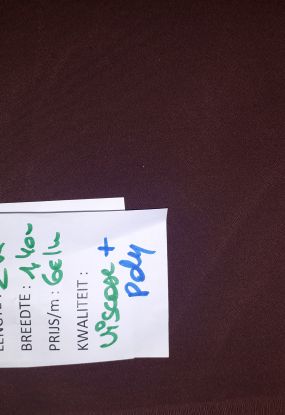 BREEDTE : 140~
PRIJS/m : 6el~
KWALITEIT :
viscose +
poly